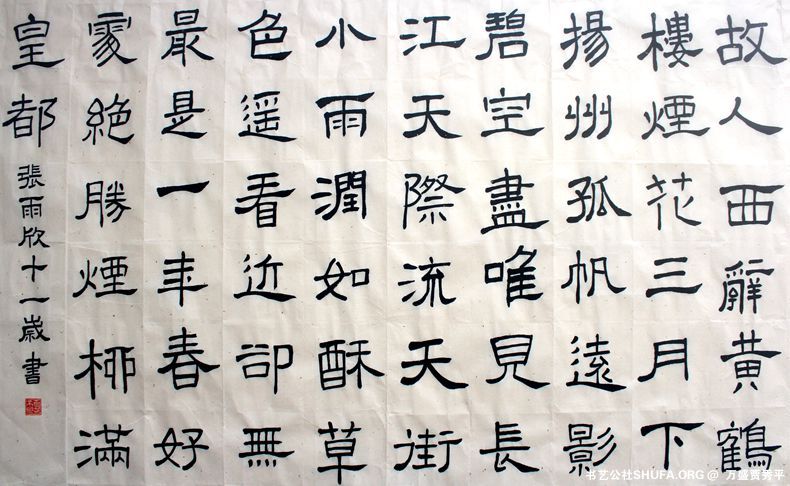 故人西辭黄鶴
樓煙花三月下
揚州孤帆遠影
碧空盡唯見長
江天際流天街
小雨潤如酥草
色遥看近卻無
最是一年春好
處絶勝煙柳滿
皇都
張雨欣十一歲書
书艺公社SHUFA.ORG @ 万盛贾秀平